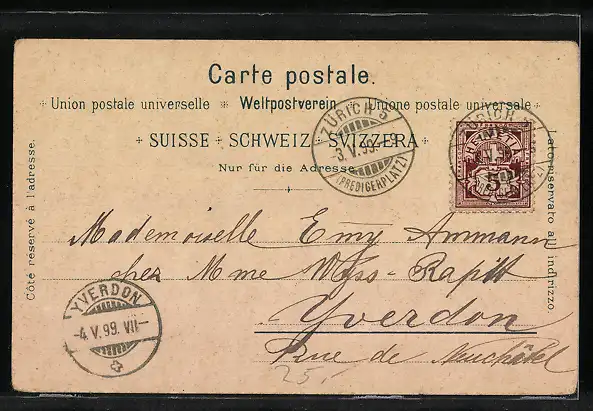 Carte postale.
Union postale universelle Weltpostverein Unione postale universale
SUISSE SCHWEIZ SVIZZERA
Nur für die Adresse
Côté réservé à l'adresse.
Lato riservato all'indirizzo.
ZÜRICH 5
-3.V.99.
(PREDIGERPLATZ)
HELVETIA
5
Mademoiselle Emmy Ammann
chez Mme Wyss-Rapitt
Yverdon
Rue de Neuchâtel
YVERDON
-4.V.99.VII-
25.-